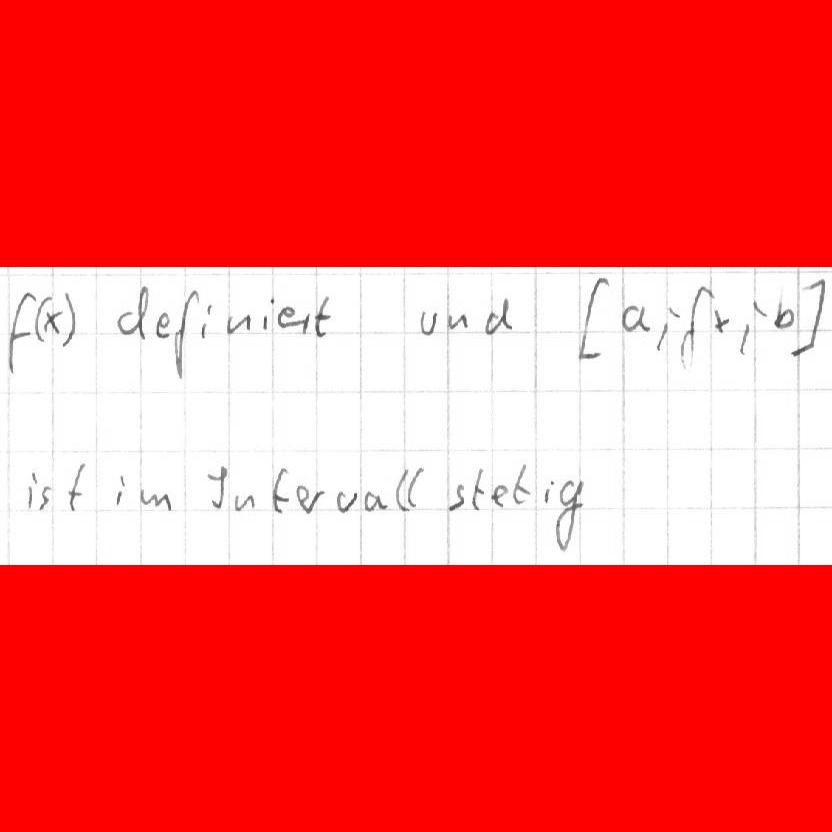 f(x) definiert und [a; fx; b]
ist im Intervall stetig